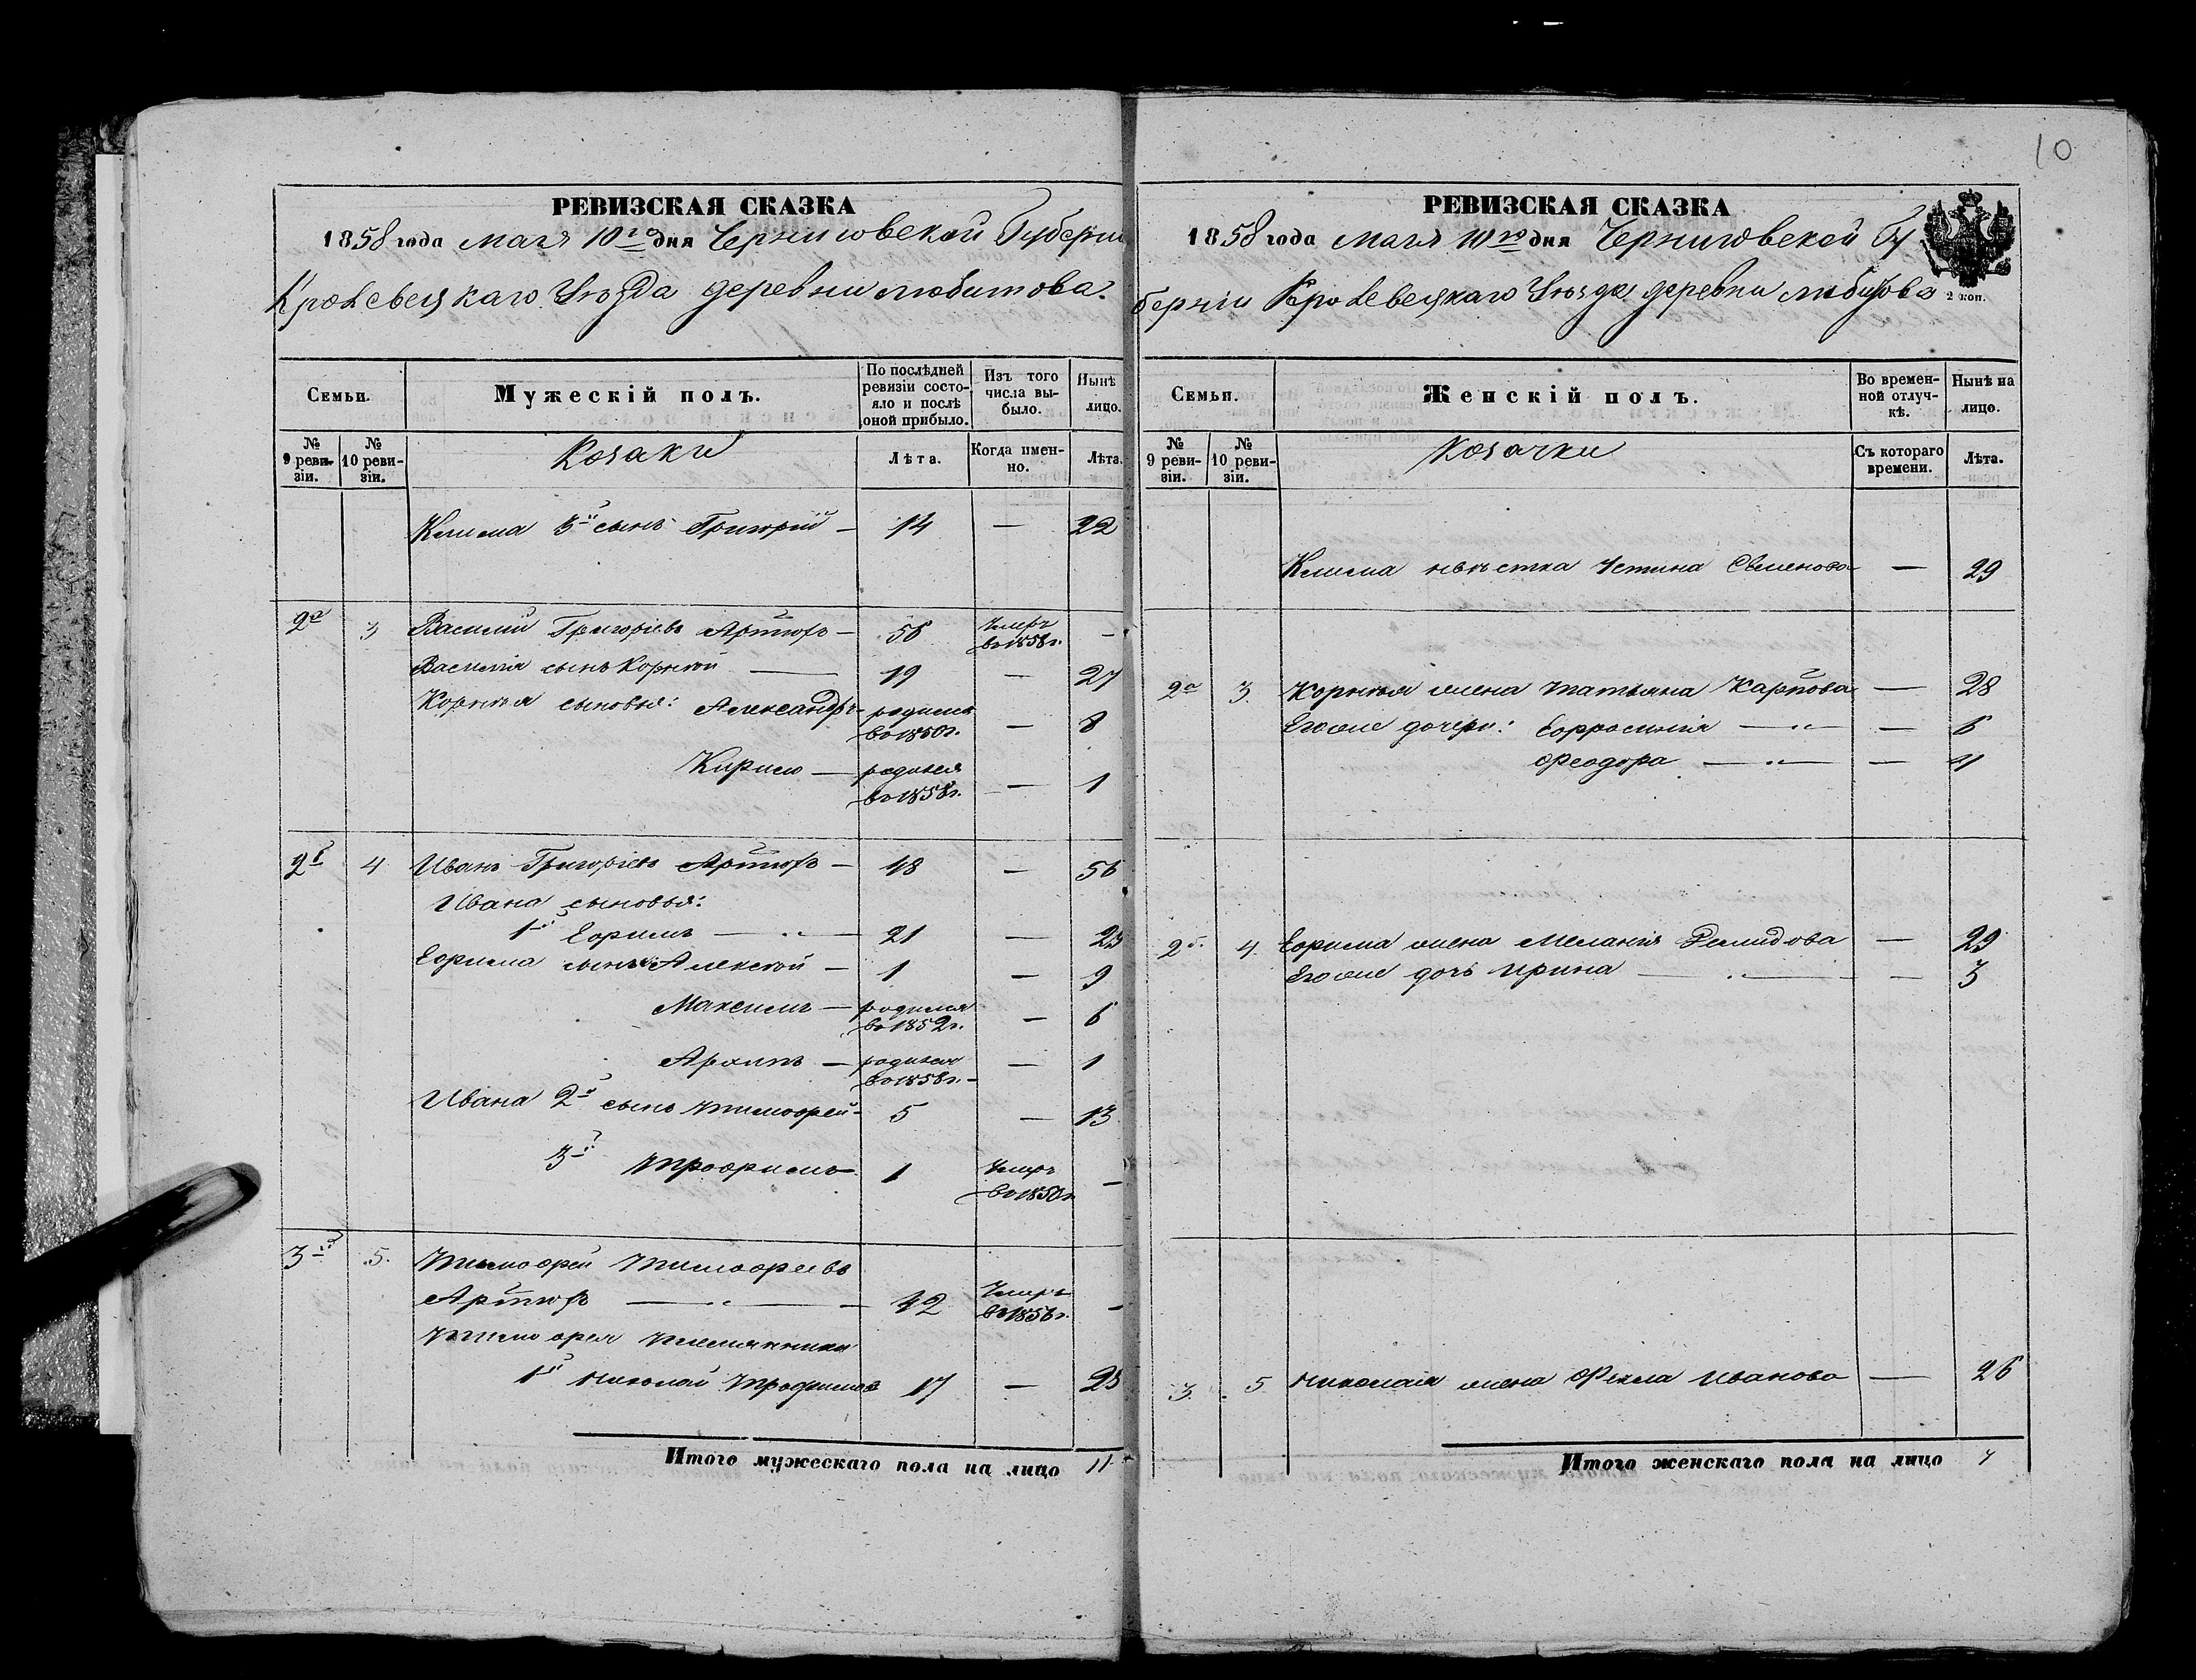 10
РЕВИЗСКАЯ СКАЗКА
1858 года мая 10го дня Черниговской Губерніи
Кролевецкаго Уѣзда деревни Любитова.
Семьи.
Мужескій полъ.
По послѣдней ревизіи состояло и послѣ оной прибыло.
Изъ того числа выбыло.
Нынѣ на лицо.
№ 9 ревизіи.
№ 10 ревизіи.
Козаки
Лѣта.
Когда именно.
Лѣта.
Клима 3й сынъ Григорій — 14 — 22
2а 3 Василий Григоріевъ Артюхъ — 56 Умеръ въ 1858 г. —
Василія сынъ Корнѣй — 19 — 27
Корнѣя сыновья: Александръ — родился въ 1850 г. — 8
Кирило — родился въ 1858 г. — 1
2б 4 Иванъ Григоріевъ Артюхъ — 48 — 56
Ивана сыновья:
1й Ефимъ — 21 — 29
Ефима сынъ Алексѣй — 1 — 9
Максимъ — родился въ 1852 г. — 6
Архипъ — родился въ 1858 г. — 1
Ивана 2й сынъ Тимофей — 5 — 13
3й Трофимъ 1 Умеръ въ 1850 г. —
3й 5. Тимофей Тимофеевъ
Артюхъ — 42 Умеръ въ 1856 г. —
Тимофея племянники
1й Николай Трофимовъ 17 — 25
Итого мужескаго пола на лицо 11
РЕВИЗСКАЯ СКАЗКА
1858 года мая 10го дня Черниговской Гу
берніи Кролевецкаго Уѣзда деревни Любитова
2 коп.
Семьи.
Женскій полъ.
Во временной отлучкѣ.
Нынѣ на лицо.
№ 9 ревизіи.
№ 10 ревизіи.
Козачки
Съ котораго времени.
Лѣта.
Клима невѣстка Устина Семенова — 29
2а 3. Корнѣя жена Татьяна Карпова — 28
Его же дочери: Ефросинія — 6
Феодора — 4
2б. 4. Ефима жена Меланія Демидова — 29
Его же дочь Ирина — 3
3. 5 Николая жена Фекла Иванова — 26
Итого женскаго пола на лицо 7